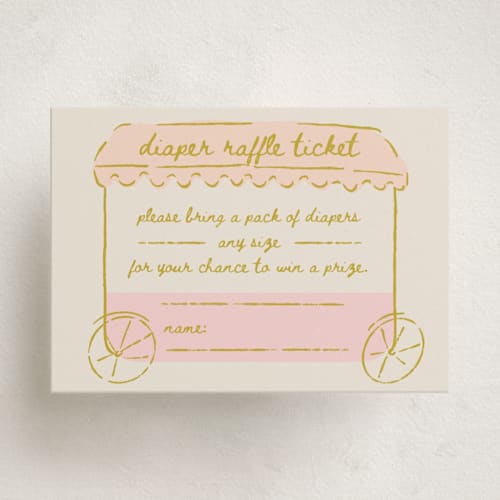 diaper raffle ticket
please bring a pack of diapers
any size
for your chance to win a prize.
name: